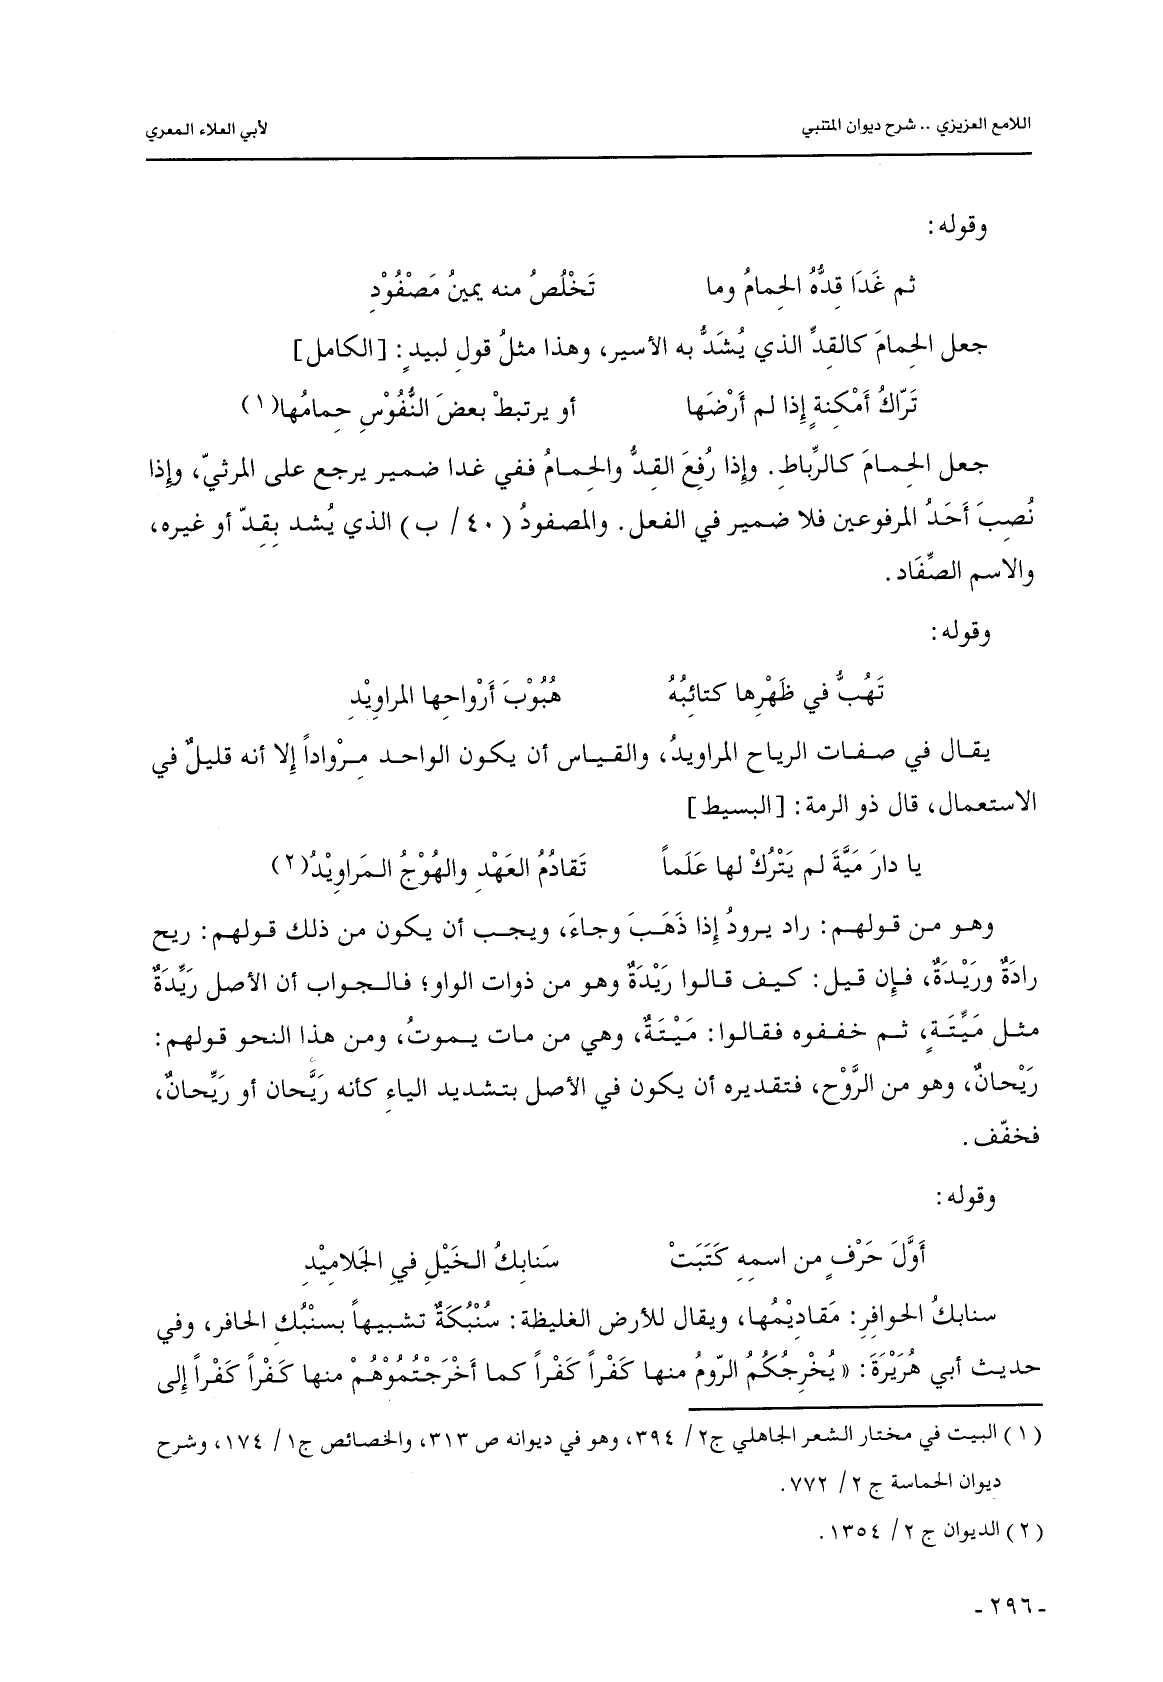 اللامع العزيزي .. شرح ديوان المتنبي لأبي العلاء المعري
وقوله:
ثم غَدَا قِدُّهُ الحِمامُ وما تَخْلُصُ منه يمينُ مَصْفُوْدِ
جعل الحِمامَ كالقِدِّ الذي يُشَدُّ به الأسير، وهذا مثلُ قولِ لبيدٍ: [الكامل]
تَرّاكُ أَمْكِنةٍ إذا لم أَرْضَها أو يرتبطْ بعضَ النُّفُوْسِ حِمامُها(١)
جعل الحِمامَ كالرِّباطِ. وإذا رُفِعَ القِدُّ والحِمامُ ففي غدا ضمير يرجع على المرثيّ، وإذا
نُصِبَ أَحَدُ المرفوعين فلا ضمير في الفعل. والمصفودُ (٤٠/ ب) الذي يُشد بِقِدّ أو غيره،
والاسم الصِّفَاد.
وقوله:
تَهُبُّ في ظَهْرِها كتائِبُهُ هُبُوْبَ أَرْواحِها المراوِيْدِ
يقال في صفات الرياح المراويدُ، والقياس أن يكون الواحد مِرْواداً إلا أنه قليلٌ في
الاستعمال، قال ذو الرمة: [البسيط]
يا دارَ مَيَّةَ لم يَتْرُكْ لها عَلَماً تَقادُمُ العَهْدِ والهُوْجُ المَراوِيْدُ(٢)
وهو من قولهم: راد يرودُ إذا ذَهَبَ وجاءَ، ويجب أن يكون من ذلك قولهم: ريح
رادَةٌ ورَيْدَةٌ، فإن قيل: كيف قالوا رَيْدَةٌ وهو من ذوات الواو؛ فالجواب أن الأصل رَيِّدَةٌ
مثل مَيِّتَةٍ، ثم خففوه فقالوا: مَيْتَةٌ، وهي من مات يموتُ، ومن هذا النحو قولهم:
رَيْحانٌ، وهو من الرَّوْح، فتقديره أن يكون في الأصل بتشديد الياءِ كأنه رَيَّحان أو رَيِّحانٌ،
فخفّف.
وقوله:
أَوَّلَ حَرْفٍ من اسمِهِ كَتَبَتْ سَنابِكُ الخَيْلِ فِي الجَلامِيْدِ
سنابكُ الحوافرِ: مَقادِيْمُها، ويقال للأرض الغليظة: سُنْبُكَةٌ تشبيهاً بسنْبُكِ الحافر، وفي
حديث أبي هُرَيْرَةَ: «يُخْرِجُكُمُ الرّومُ منها كَفْراً كَفْراً كما أَخْرَجْتُمُوْهُمْ منها كَفْراً كَفْراً إلى
(١) البيت في مختار الشعر الجاهلي ج٢/ ٣٩٤، وهو في ديوانه ص ٣١٣، والخصائص ج١/ ١٧٤، وشرح
ديوان الحماسة ج ٢/ ٧٧٢.
(٢) الديوان ج ٢/ ١٣٥٤.
- ٢٩٦ -